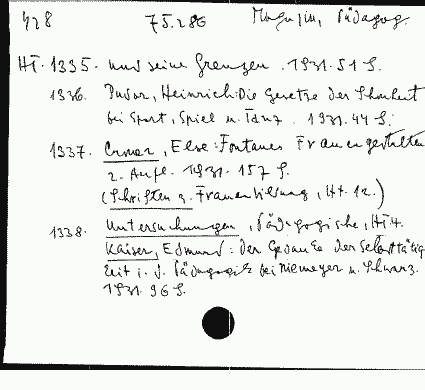 428 75.286 Magazin, Pädagog.
Ht. 1335. und seine Grenzen. 1931. 51 S.
1336. Pudor, Heinrich: Die Gesetze der Schönheit
bei Sport, Spiel u. Tanz. 1931. 44 S.
1337. Croner, Else: Fontanes Frauengestalten
2. Aufl. 1931. 157 S.
(Schriften z. Frauenbildung, Ht. 12.)
1338. Untersuchungen, Pädagogische, Ht 4.
Kaiser, Edmund: Der Gedanke der Selbsttätig
keit i. d. Pädagogik bei Niemeyer u. Schwarz.
1931. 96 S.